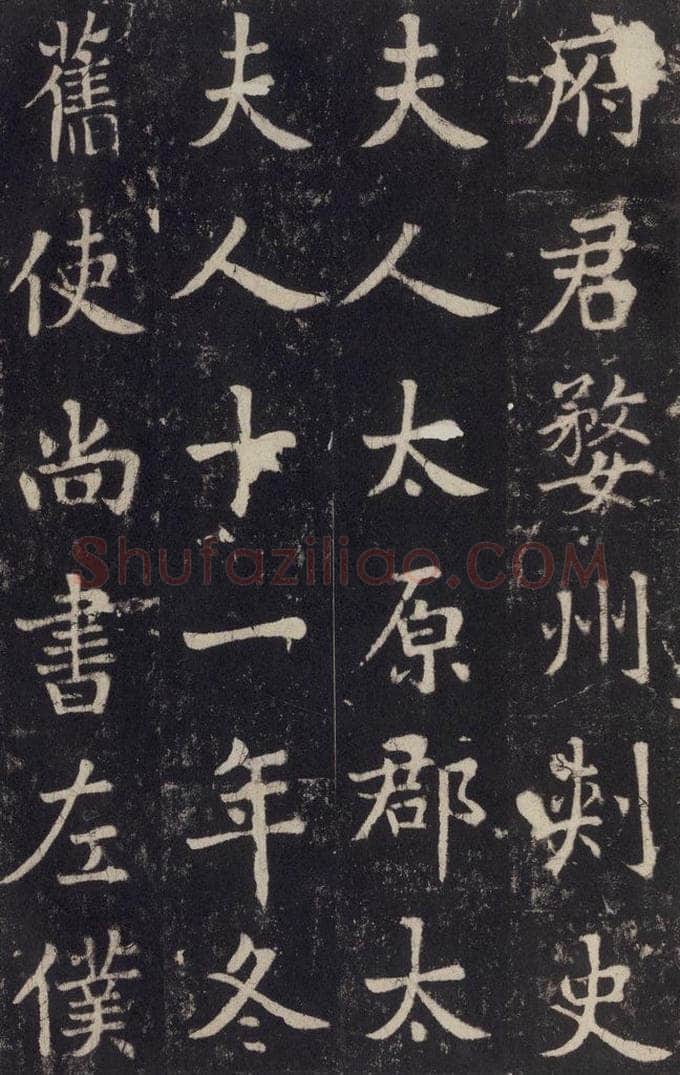 府君婺州刺史
夫人太原郡太
夫人十一年冬
舊使尚書左僕
Shufaziliao.COM